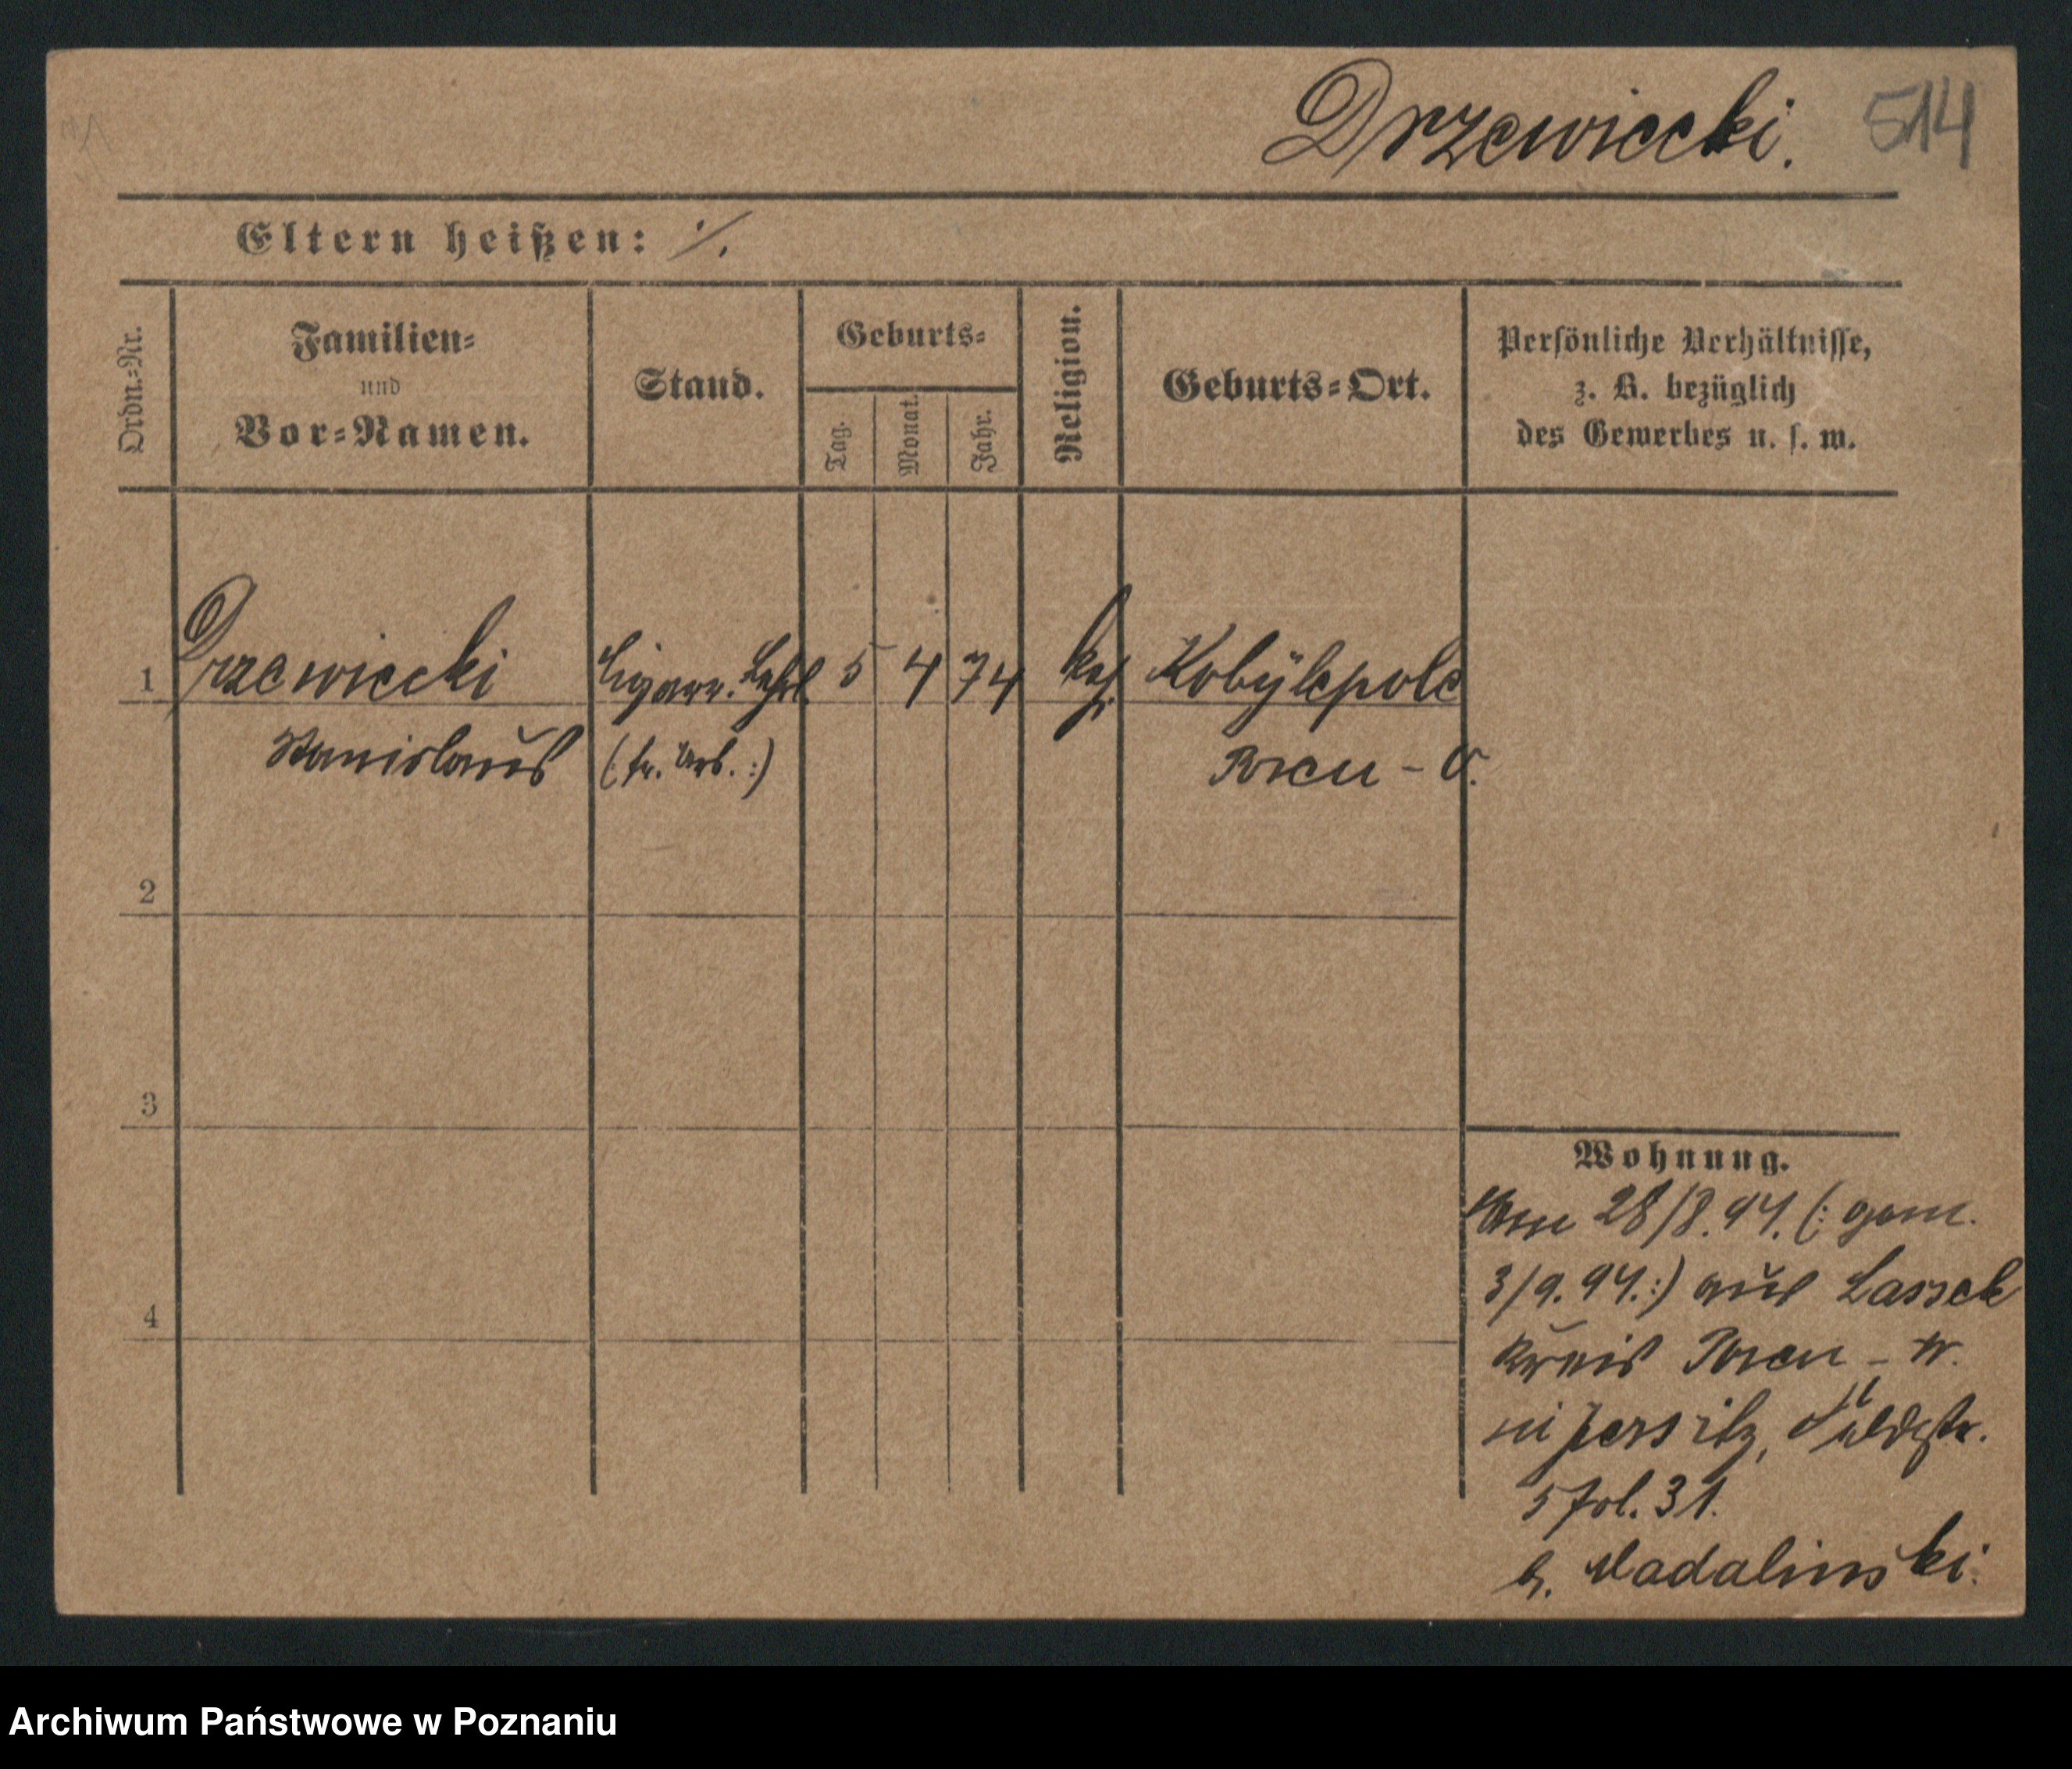 Drzewiecki. 514
Eltern heißen: ./.
Ordn.-Nr.
Familien-
und
Vor-Namen.
Stand.
Geburts-
Tag.
Monat.
Jahr.
Religion.
Geburts-Ort.
Persönliche Verhältnisse,
z. B. bezüglich
des Gewerbes u. s. w.
1 Drzewiecki Cigarr. Lehrl. 5 4 74 kath. Kobylepole
Stanislaus (: fr. Arb. :) Posen - O.
2
3
4
Wohnung.
Am 28/8. 94. (: gem.
3/9. 94. :) aus Lassek
Kreis Posen - W.
in Jersitz,
5 fol. 31.
b. Madalinski.
Archiwum Państwowe w Poznaniu